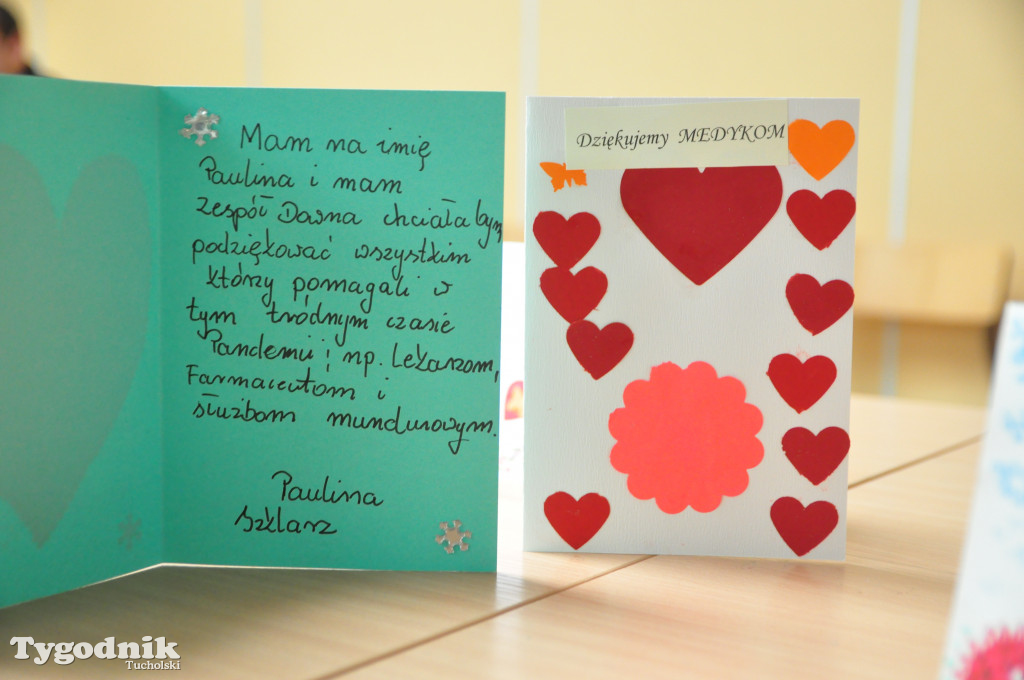 Mam na imię
Paulina i mam
zespół Dawna chciała bym
podziękować wszystkim
którzy pomagali w
tym tródnym czasie
Pandemii np. Lekarzom,
Farmaceutom i
służbom mundurowym.
Paulina
Szklarz
Dziękujemy MEDYKOM
Tygodnik
Tucholski